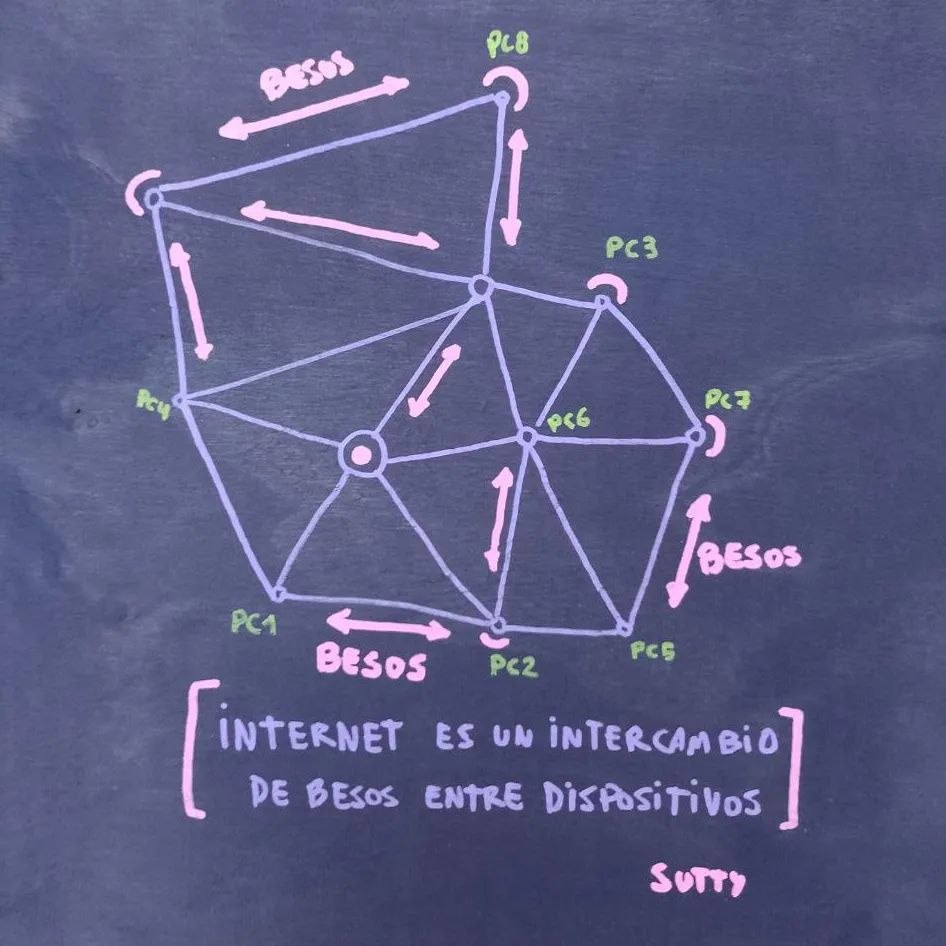 PC8
BESOS
PC3
PC4
PC7
PC6
BESOS
PC1
BESOS
PC2
PC5
INTERNET ES UN INTERCAMBIO
DE BESOS ENTRE DISPOSITIVOS
SUTTY